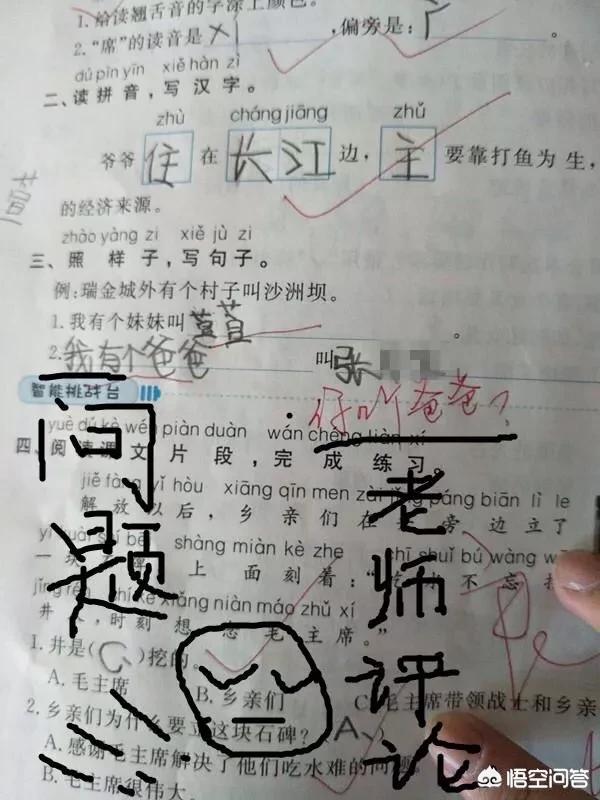 1.给读翘舌音的字涂上颜色。
2.“席”的读音是 xí ,偏旁是: 广 。
dú pīn yīn xiě hàn zì
二、读拼音,写汉字。
zhù cháng jiāng zhǔ
爷爷 住 在 长江 边, 主 要靠打鱼为生,
的经济来源。
zhào yàng zi xiě jù zi
三、照样子,写句子。
例:瑞金城外有个村子叫沙洲坝。
1.我有个妹妹叫 。
2.我有个爸爸 叫 张
智能挑战台
你叫爸爸?
yuè dú kè wén piàn duàn wán chéng liàn xí
四、阅读课文片段,完成练习。
jiě fàng yǐ hòu xiāng qīn men zài jǐng páng biān lì le
解放以后,乡亲们在 旁边立了
shàng miàn kè zhe chī shuǐ bú wàng
一块 上面刻着:“吃 不忘
xiǎng niàn máo zhǔ xí
井 ,时刻想念毛主席。”
1.井是( C )挖的
A.毛主席 B.乡亲们 C.毛主席带领战士和乡亲
2.乡亲们为什么要立这块石碑?( A )
A.感谢毛主席解决了他们吃水难的问题。
B.毛主席很伟大。
问题
老师评论
悟空问答